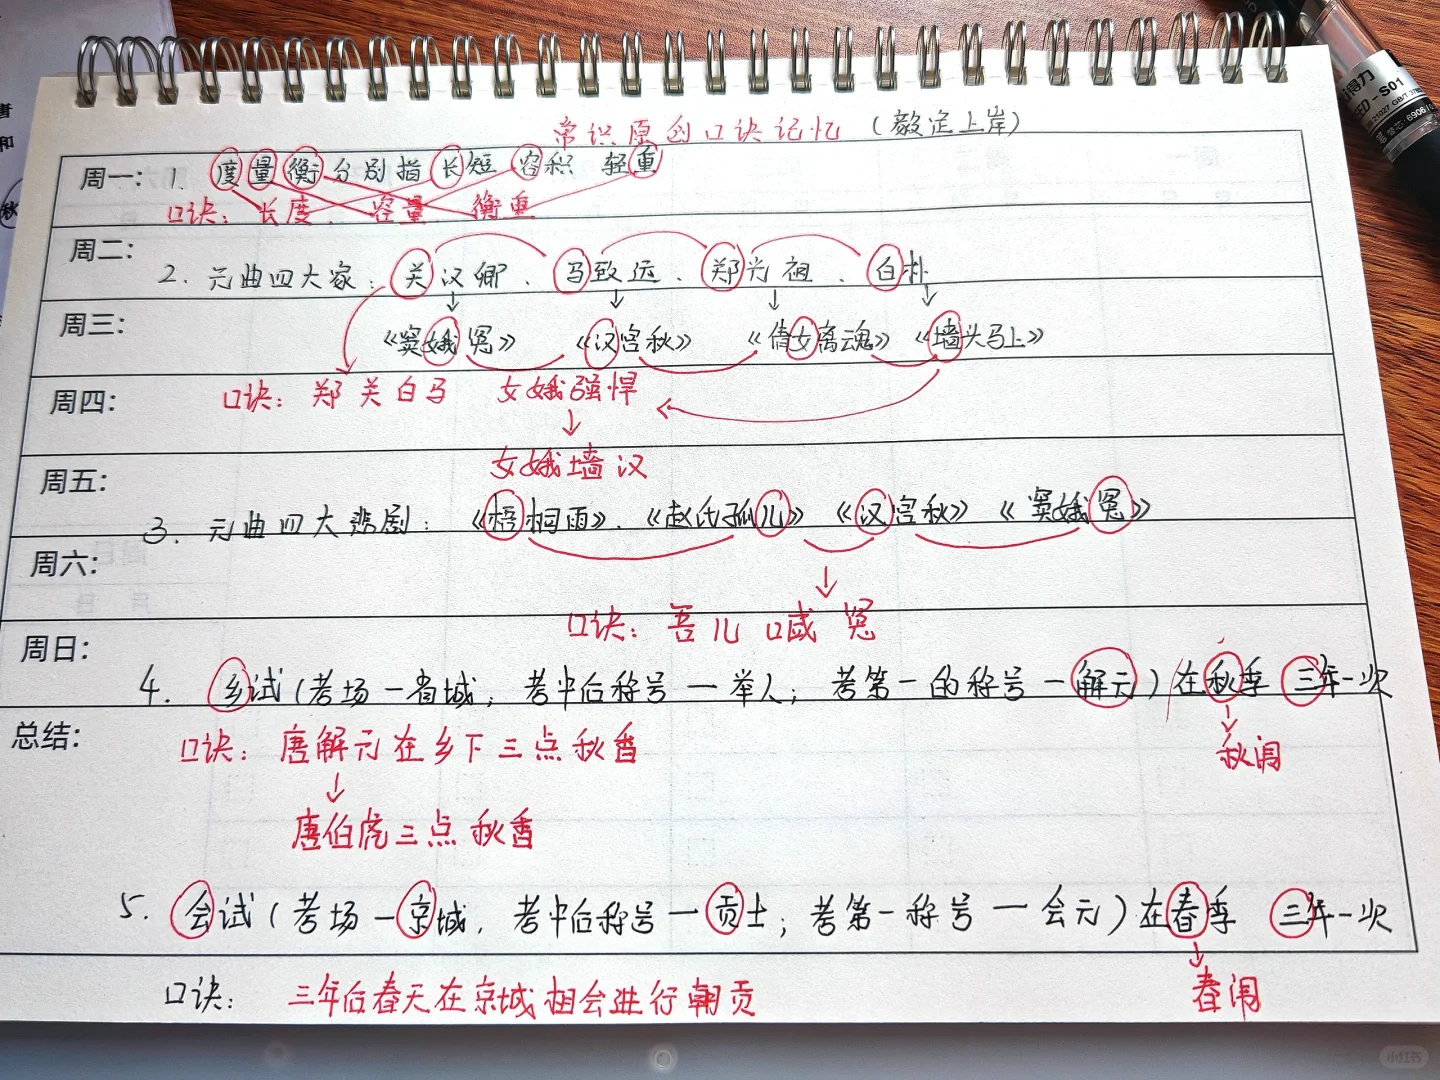 常识原创口诀记忆（毅定上岸）
周一：1. 度量衡分别指长短 容积 轻重
口诀：长度、容量、衡重
周二：
2. 元曲四大家：关汉卿、马致远、郑光祖、白朴
周三：
《窦娥冤》 《汉宫秋》 《倩女离魂》 《墙头马上》
周四：
口诀：郑关白马 女娥强悍
女娥墙汉
周五：
3. 元曲四大悲剧：《梧桐雨》、《赵氏孤儿》《汉宫秋》《窦娥冤》
周六：
口诀：吾儿喊冤
周日：
4. 乡试（考场一省城；考中后称号一举人；考第一的称号一解元）在秋季 三年一次
总结：
秋闱
口诀：唐解元在乡下三点秋香
唐伯虎三点秋香
5. 会试（考场一京城，考中后称号一贡士；考第一称号一会元）在春季 三年一次
春闱
口诀：三年后春天在京城相会进行朝贡
得力
S01
小红书
唐
和
秋